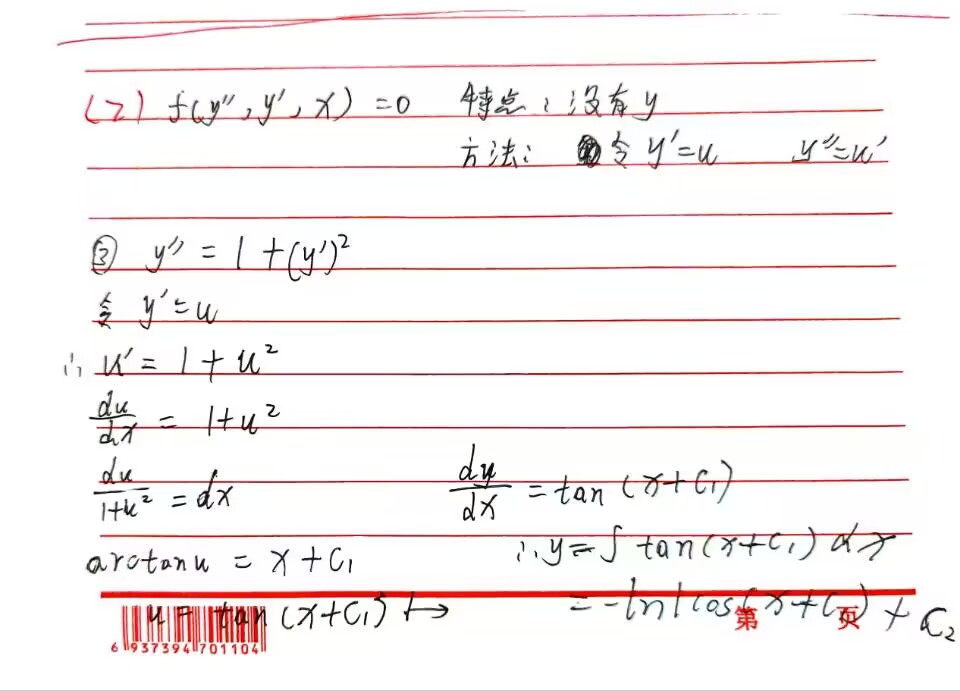 (2) f(y'',y',x)=0 特点:没有y
方法: 令 y'=u y''=u'
③ y''=1+(y')²
令 y'=u
∴ u'=1+u²
du/dx = 1+u²
du/1+u² = dx
arctanu = x+C₁
u = tan(x+C₁) ↦
dy/dx = tan(x+C₁)
∴y=∫tan(x+C₁)dx
=-ln|cos(x+C₁)+C₂
第 页
6 937394 701104